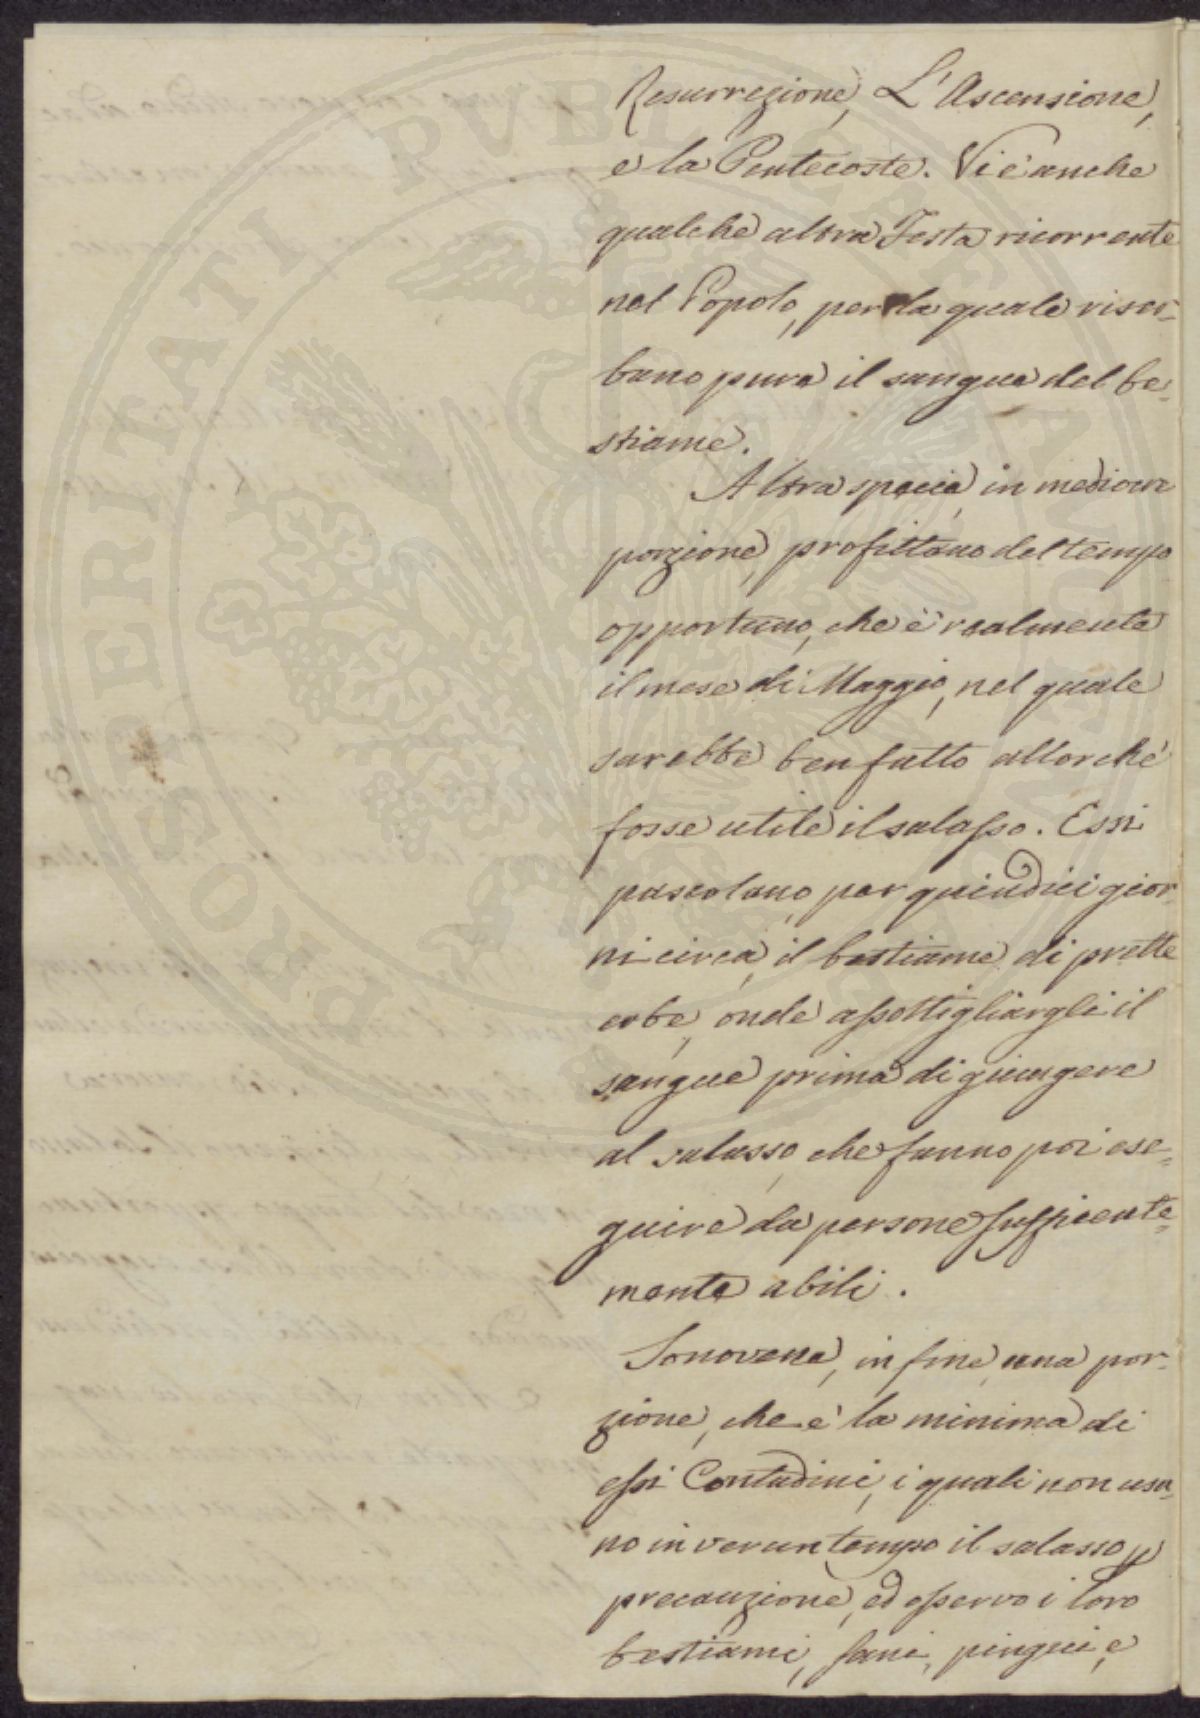 Resurrezione, L'Ascensione,
e la Pentecoste. Vi è anche
qualche altra Festa ricorrente
nel Popolo, per la quale riser=
bano pure il sangue del be=
stiame.
Altra specie, in mediocre
porzione, profittano del tempo
opportuno, che è realmente
il mese di Maggio, nel quale
sarebbe ben fatto allorché
fosse utile il salasso. Essi
pascolano, per quindici gior=
ni circa, il bestiame di prette
erbe, onde assottigliargli il
sangue prima di giungere
al salasso, che fanno poi ese=
guire da persone sufficiente=
mente abili.
Sonovene, in fine, una por=
zione, che è la minima di
essi Contadini, i quali non usa=
no in verun tempo il salasso p
precauzione, ed osservo i loro
bestiami, sani, pingui, e
PROSPERITATI PVBLICAE AVGENDAE